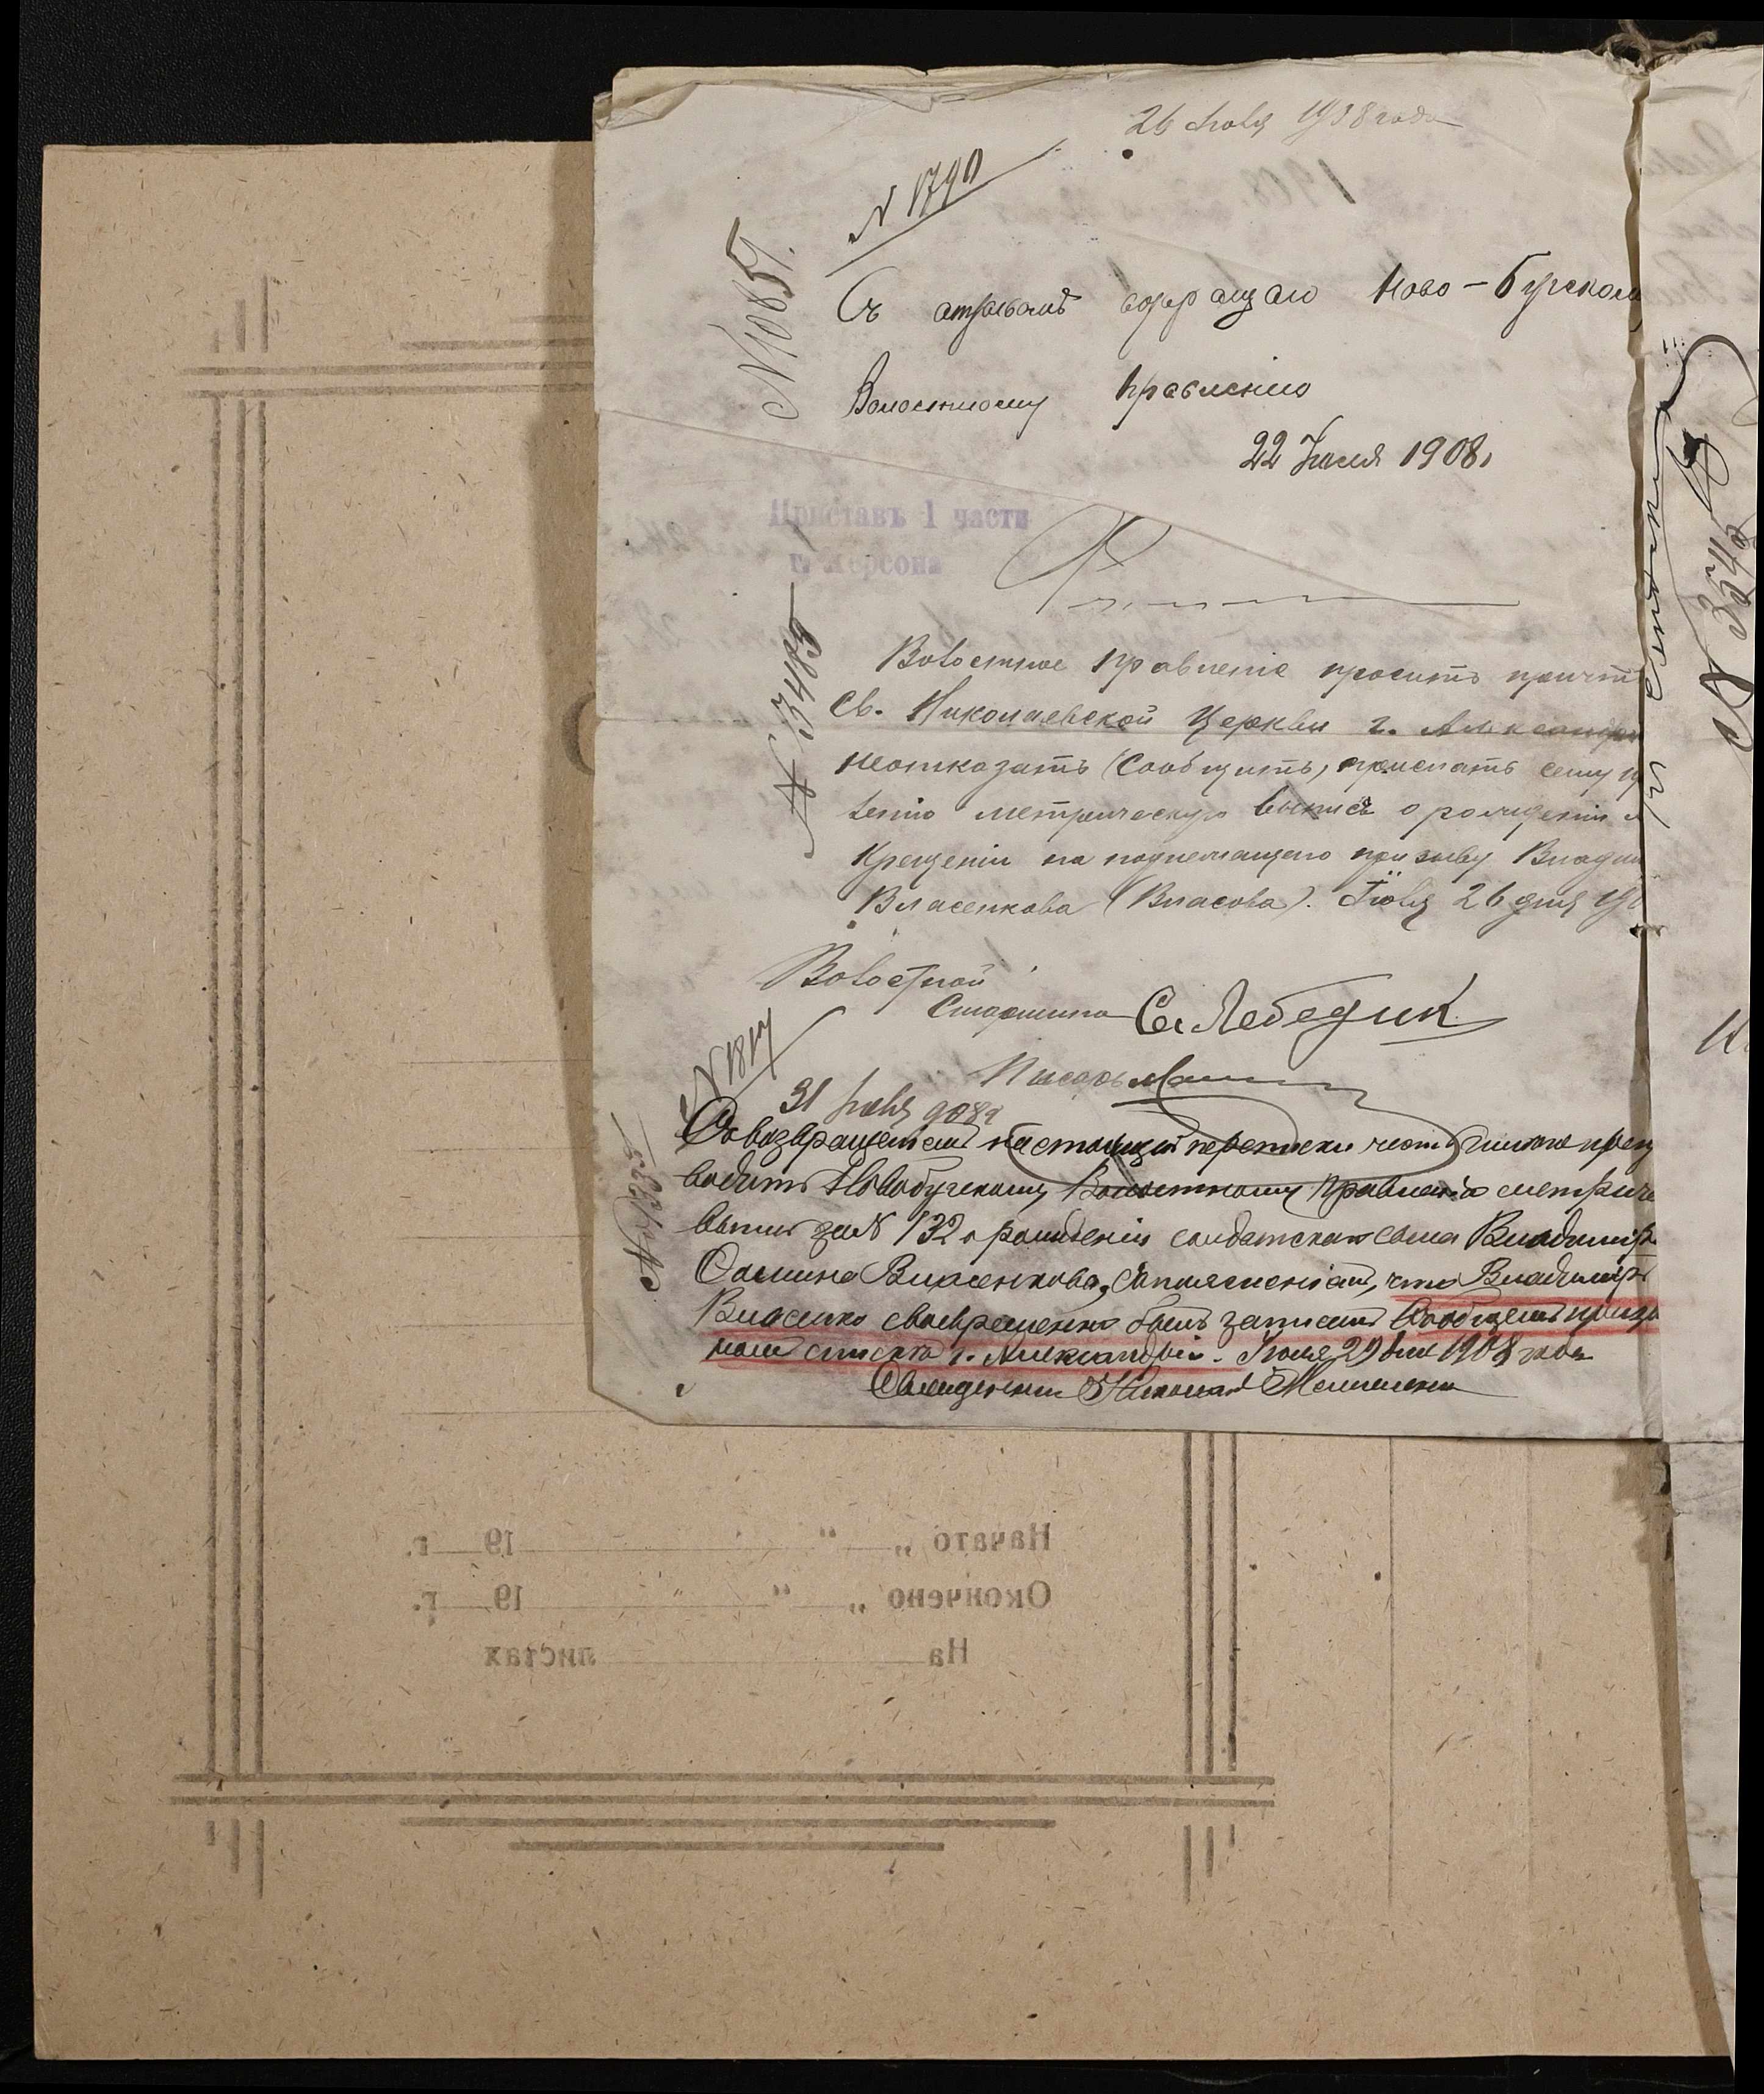 26 Іюля 1908 года
N 1790
N 10851.
Съ отзывомъ возвращаю Ново-Бугском
Волостному Правленію
22 Іюля 1908.
Приставъ 1 части
г. Херсона
N 3485
Волостное Правленіе проситъ причтъ
Св. Николаевской Церкви г. Александрі
неотказать (сообщить) прислать сему пр
ленію метрическую выпись о рожденіи и
крещеніи на подлежащаго призыву Владим
Власенкова (Власова). Іюля 26 дня 190
Волостной
Старшина Се. Лебедик
Писарь
N 1817
31 Іюля 908 г
Съ возвращеніемъ настоящей переписки честь имѣю преп
водить Новобугскому Волостному Правленію метриче
выпись за N 132 о рожденіи солдатскаго сына Владиміра
Власенкова, съ поясненіемъ, что Владиміръ
Власенко своевременно былъ записанъ въ общемъ призы
номъ спискѣ г. Александріи. Іюля 29 дня 1908 года
Священникъ Николай
N 3548
Начато „ “ 19 г.
Окончено „ “ 19 г.
На листах